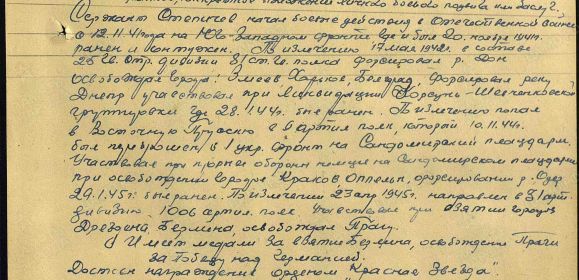 краткое изложение личного боевого подвига или заслуг
Сержант Степичев начал боевые действия в Отечественной войне
с 12.11.41 года на Юго-Западном фронте где и был 20. ноября 1941г.
ранен и контужен. По излечению 17 мая 1942г. в составе
25 Гв. стр. дивизии 81 ст. гв. полка форсировал р. Дон
освобождал города: Змеев Харьков, Белград, форсировал реку
Днепр участвовал при ликвидации Корсунь-Шевченковской
группировки где 28.1.44г. был ранен. По излечению попал
в Восточную Пруссию в 6 артил полк, который 10.11.44г.
был переброшен в 1 укр. фронт на Сандомирский плацдарм.
Участвовал при прорыве обороны немцев на Сандомирском плацдарме
при освобождении городов Краков Оппельн, форсировании р. Одер
29.1.45г. был ранен. По излечении 23 апр 1945г. направлен в 31 арт.
дивизию. 1006 артил. полк. Участвовал при взятии городов
Дрездена, Берлина, освобождал Прагу.
Имеет медали За взятие Берлина, освобождение Праги
за Победу над Германией.
Достоин награждения орденом "Красная Звезда".